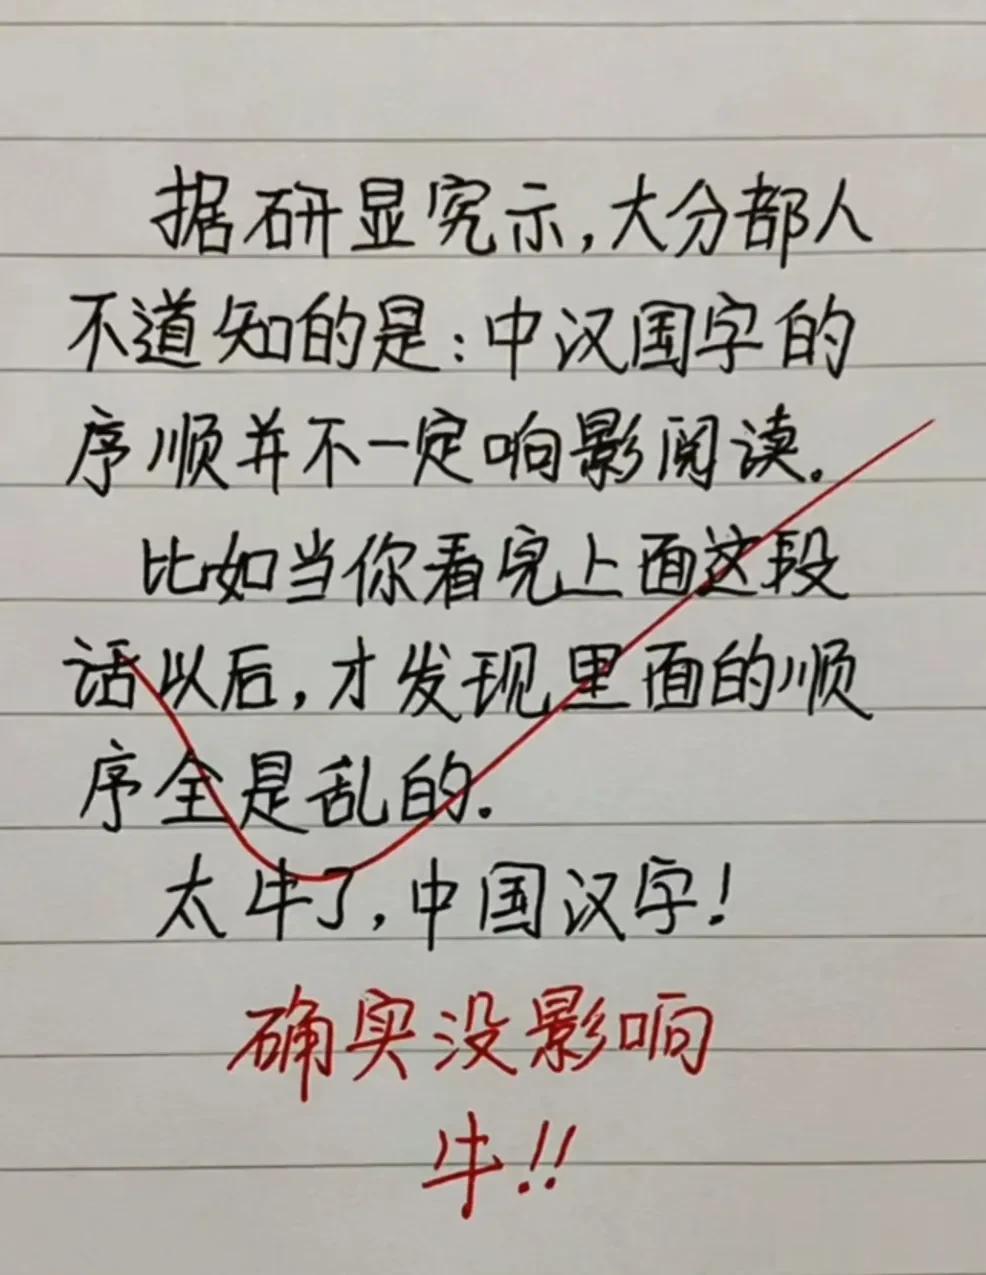 据研显究示，大分部人
不道知的是：中汉国字的
序顺并不一定响影阅读。
比如当你看完上面这段
话以后，才发现里面的顺
序全是乱的.
太牛了，中国汉字！
确实没影响
牛！！